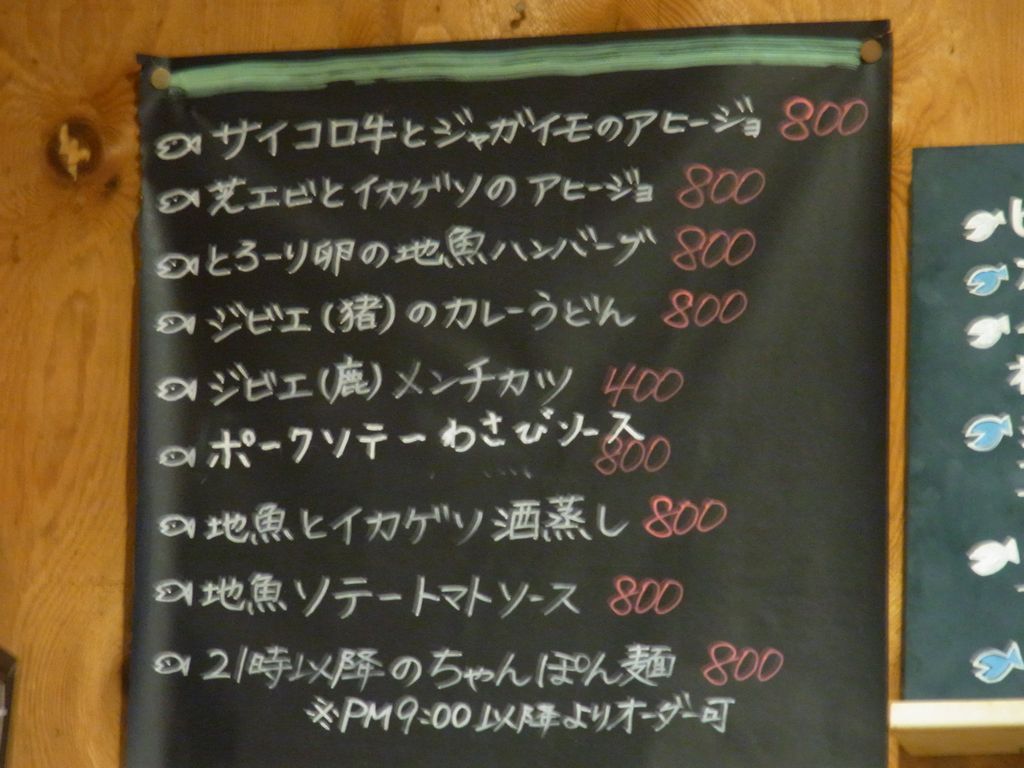 サイコロ牛とジャガイモのアヒージョ 800
芝エビとイカゲソのアヒージョ 800
とろーり卵の地魚ハンバーグ 800
ジビエ(猪)のカレーうどん 800
ジビエ(鹿)メンチカツ 400
ポークソテーわさびソース 800
地魚とイカゲソ酒蒸し 800
地魚ソテートマトソース 800
21時以降のちゃんぽん麺 800
※PM9:00以降よりオーダー可